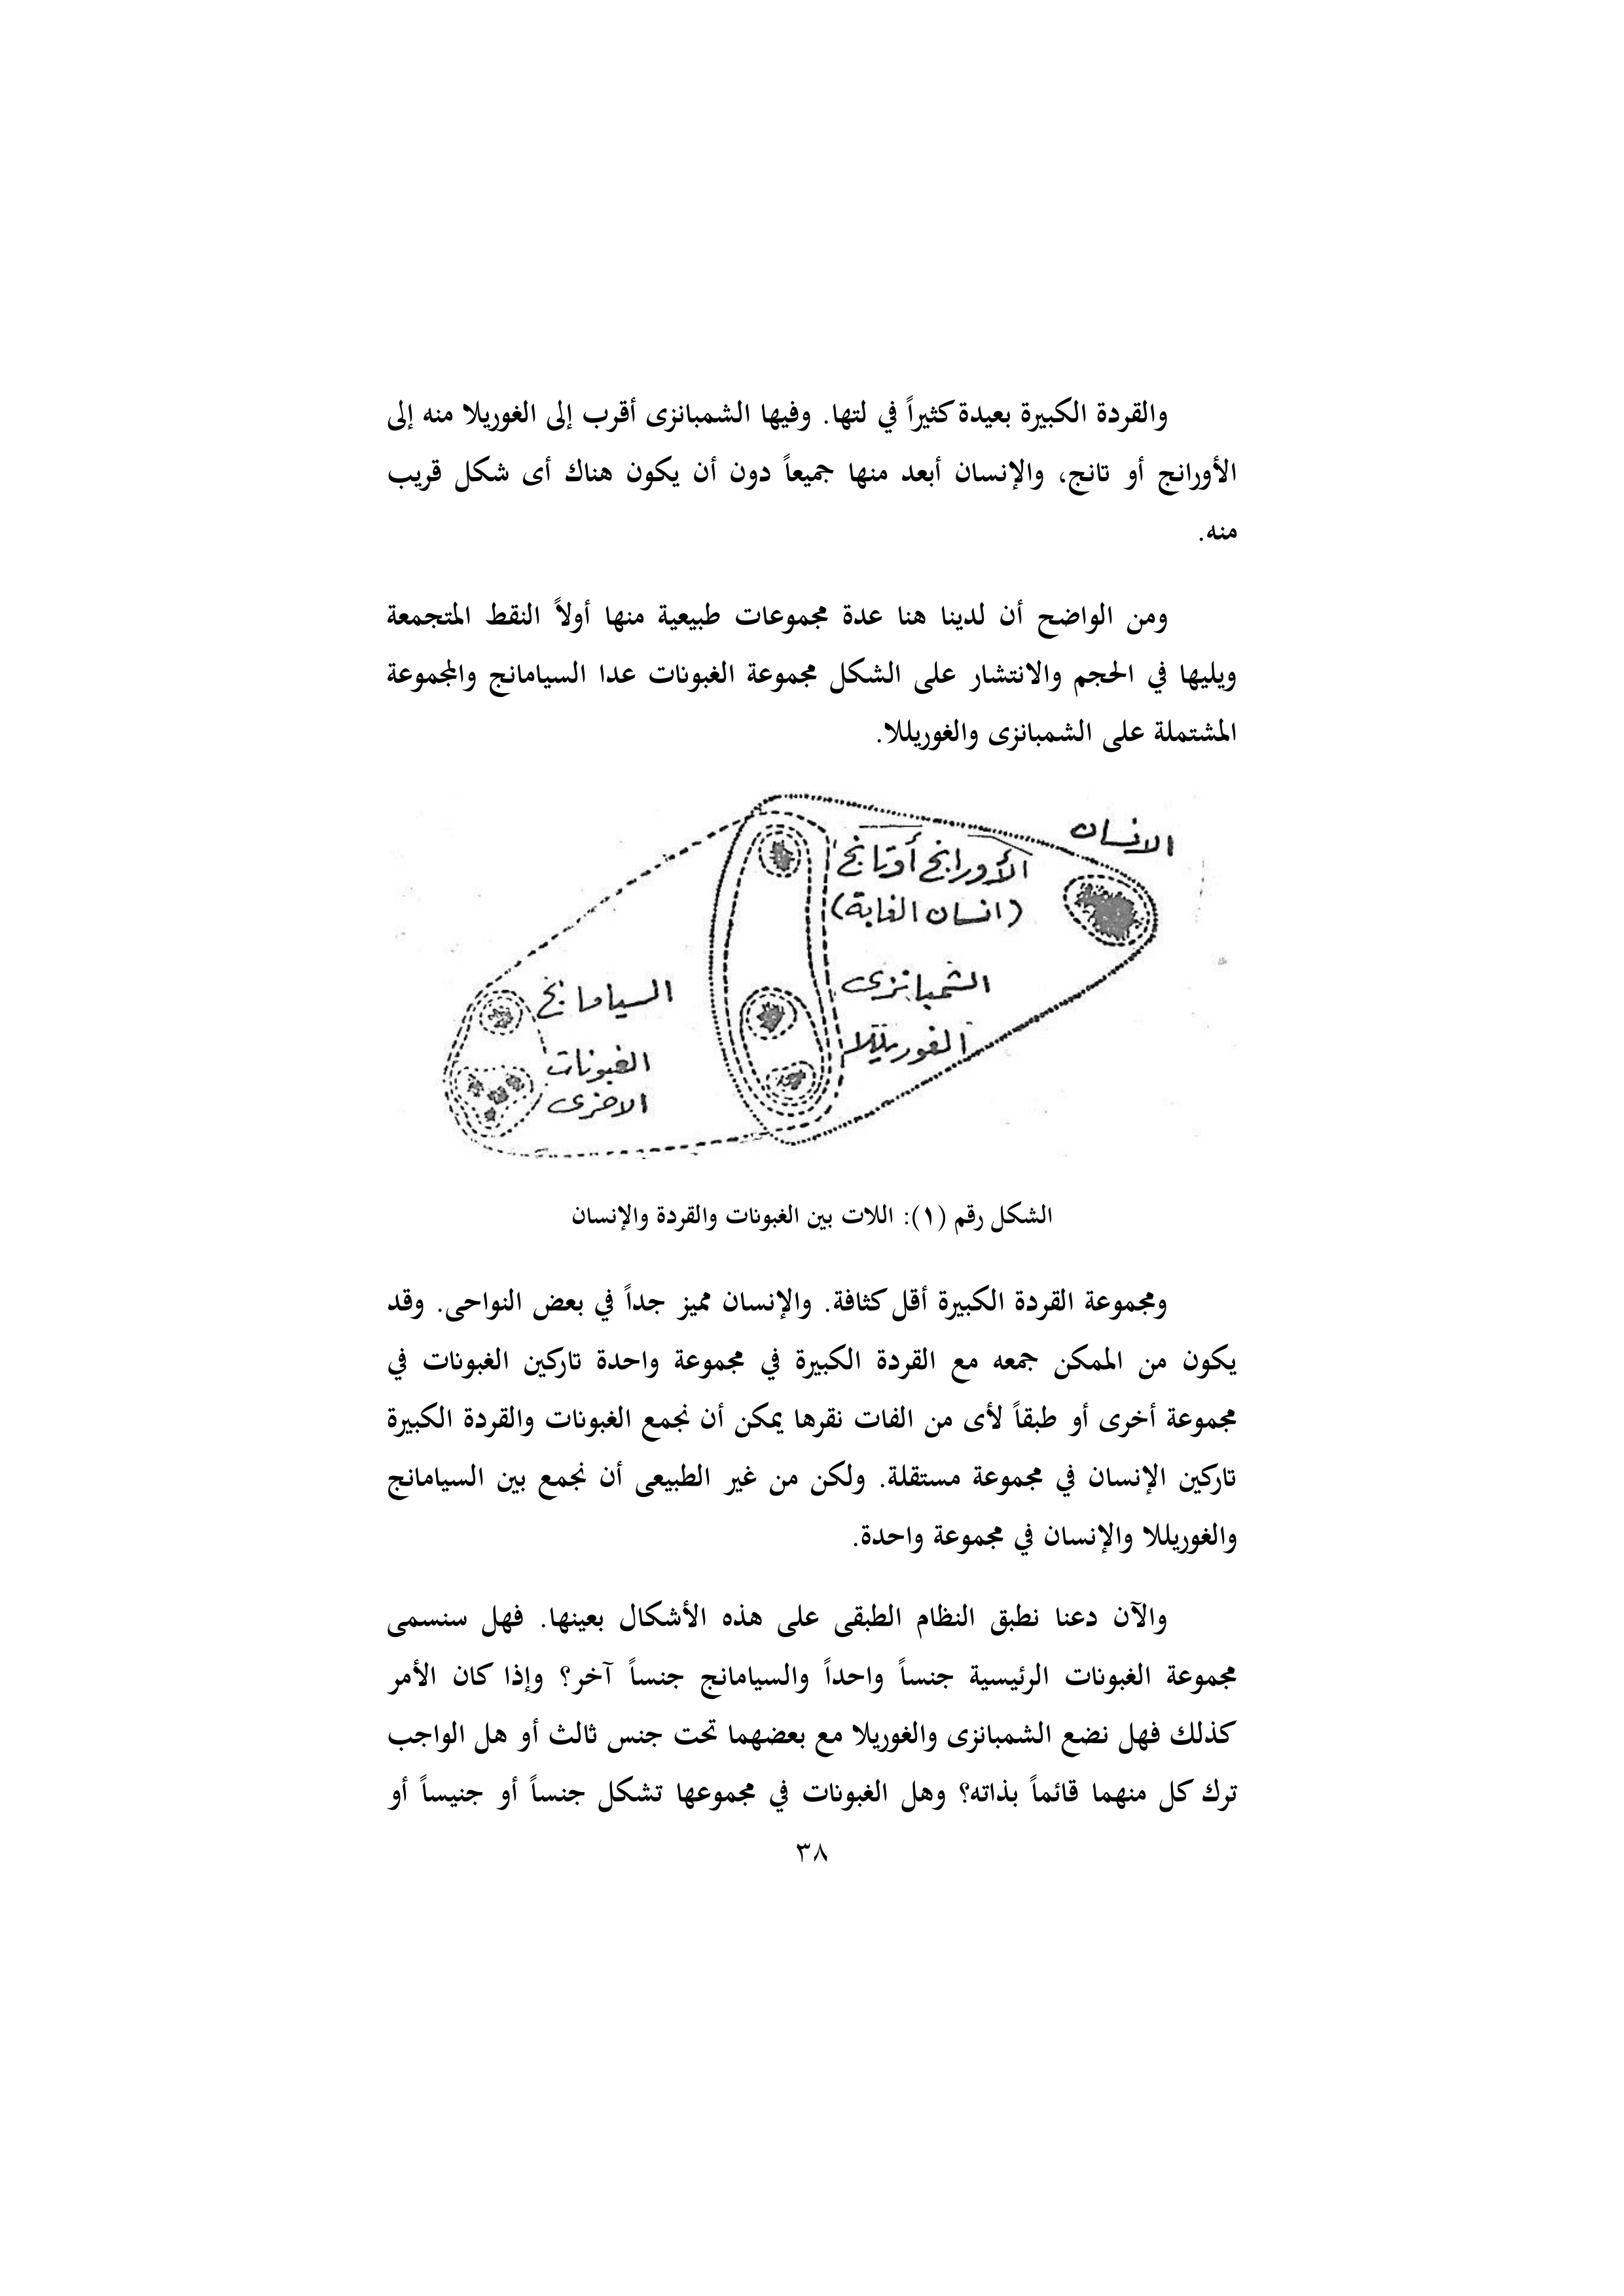 والقردة الكبيرة بعيدة كثيراً في لتها. وفيها الشمبانزى أقرب إلى الغوريلا منه إلى
الأورانج أو تانج، والإنسان أبعد منها جميعاً دون أن يكون هناك أى شكل قريب
منه.
ومن الواضح أن لدينا هنا عدة مجموعات طبيعية منها أولاً النقط المتجمعة
ويليها في الحجم والانتشار على الشكل مجموعة الغبونات عدا السيامانج والمجموعة
المشتملة على الشمبانزى والغوريللا.
الانسان
الأورانج أوتانج
(انسان الغابة)
الشمبانزى
الغوريللا
السيامانج
الغبونات
الاخرى
الشكل رقم (١): اللات بين الغبونات والقردة والإنسان
ومجموعة القردة الكبيرة أقل كثافة. والإنسان مميز جداً في بعض النواحى. وقد
يكون من الممكن جمعه مع القردة الكبيرة في مجموعة واحدة تاركين الغبونات في
مجموعة أخرى أو طبقاً لأى من الفات نقرها يمكن أن نجمع الغبونات والقردة الكبيرة
تاركين الإنسان في مجموعة مستقلة. ولكن من غير الطبيعى أن نجمع بين السيامانج
والغوريللا والإنسان في مجموعة واحدة.
والآن دعنا نطبق النظام الطبقى على هذه الأشكال بعينها. فهل سنسمى
مجموعة الغبونات الرئيسية جنساً واحداً والسيامانج جنساً آخر؟ وإذا كان الأمر
كذلك فهل نضع الشمبانزى والغوريلا مع بعضهما تحت جنس ثالث أو هل الواجب
ترك كل منهما قائماً بذاته؟ وهل الغبونات في مجموعها تشكل جنساً أو جنيساً أو
٣٨